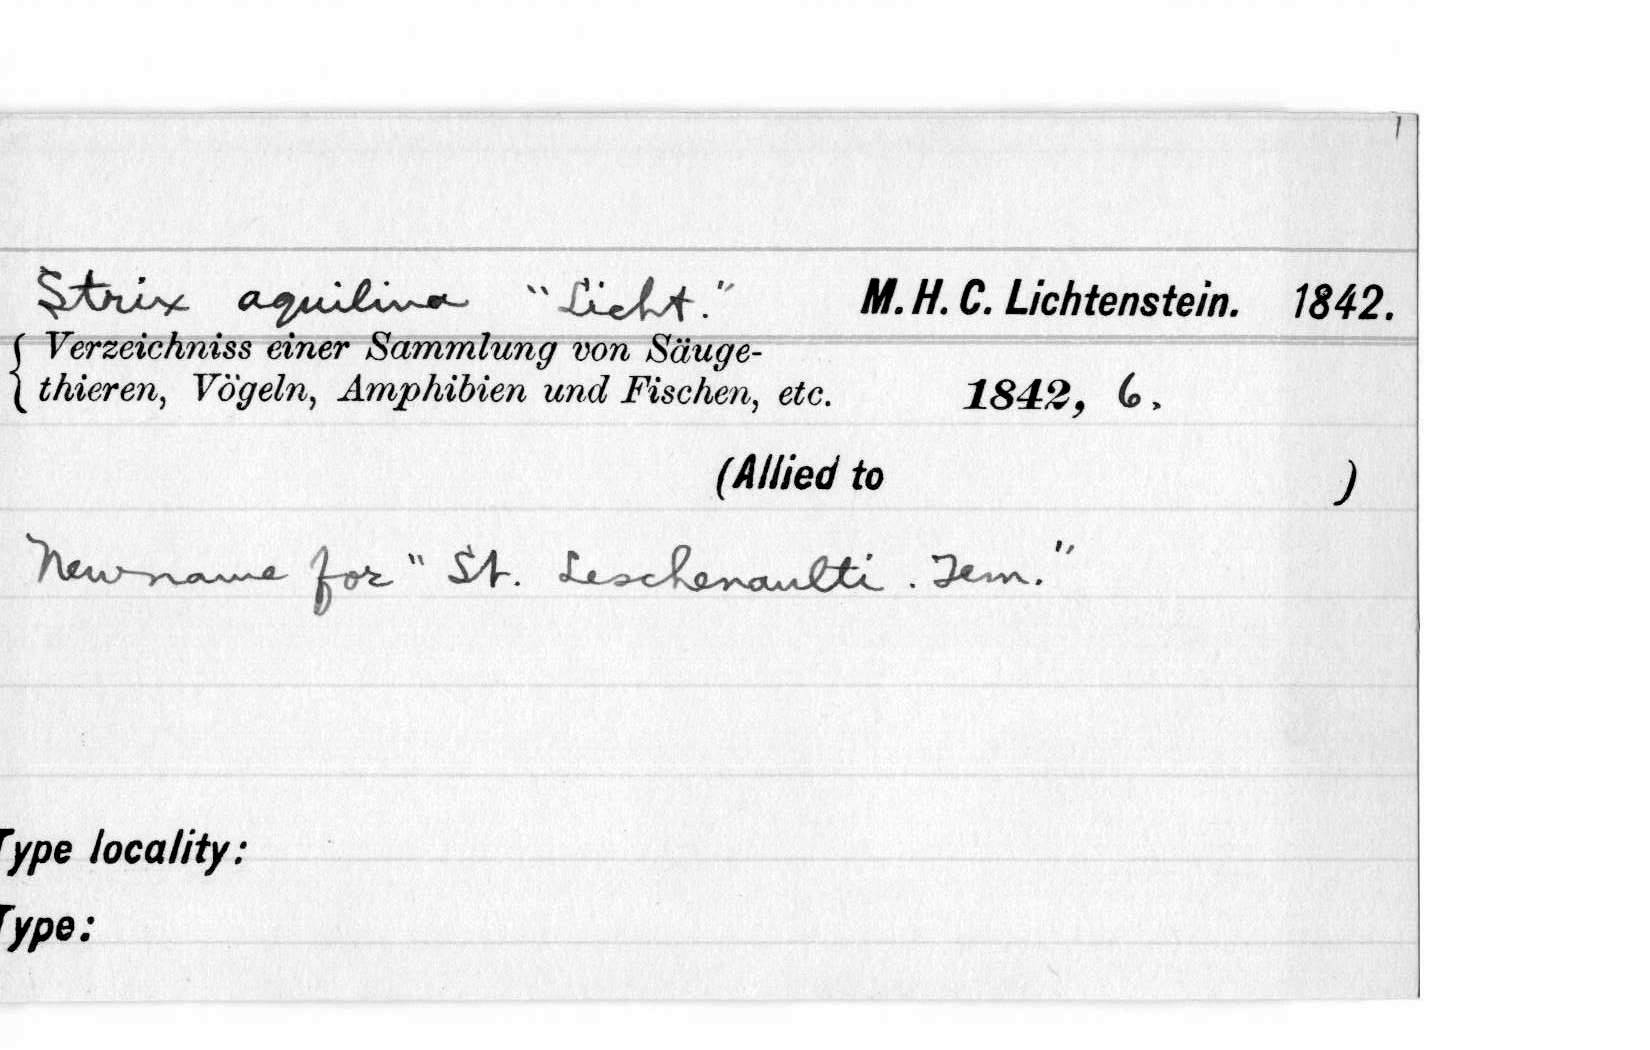 Strix aquilina "Licht." M. H. C. Lichtenstein. 1842.
Verzeichniss einer Sammlung von Säuge-
thieren, Vögeln, Amphibien und Fischen, etc. 1842, 6.
(Allied to )
New name for "St. Leschenaulti. Tem."
Type locality:
Type: